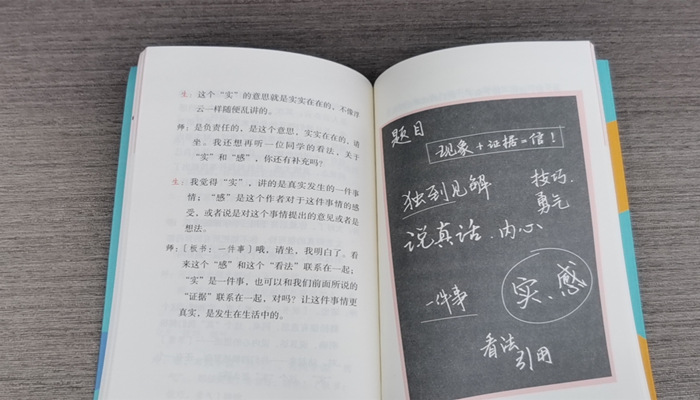 生：这个“实”的意思就是实实在在的，不像浮
云一样随便乱讲的。
师：是负责任的，是这个意思，实实在在的、请
坐。我还想再听一位同学的看法，关于
“实”和“感”，你还有补充吗？
生：我觉得“实”，讲的是真实发生的一件事
情；“感”是这个作者对于这件事情的感
受，或者说是对这个事情提出的意见或者是
想法。
师：［板书：一件事］哦，请坐，我明白了。看
来这个“感”和这个“看法”联系在一起；
“实”是一件事，也可以和我们前面所说的
“证据”联系在一起，对吗？让这件事情更
真实，是发生在生活中的。
题目
现象+证据=信！
独到见解
技巧.
勇气
说真话.内心
一件事
实、感
看法
引用